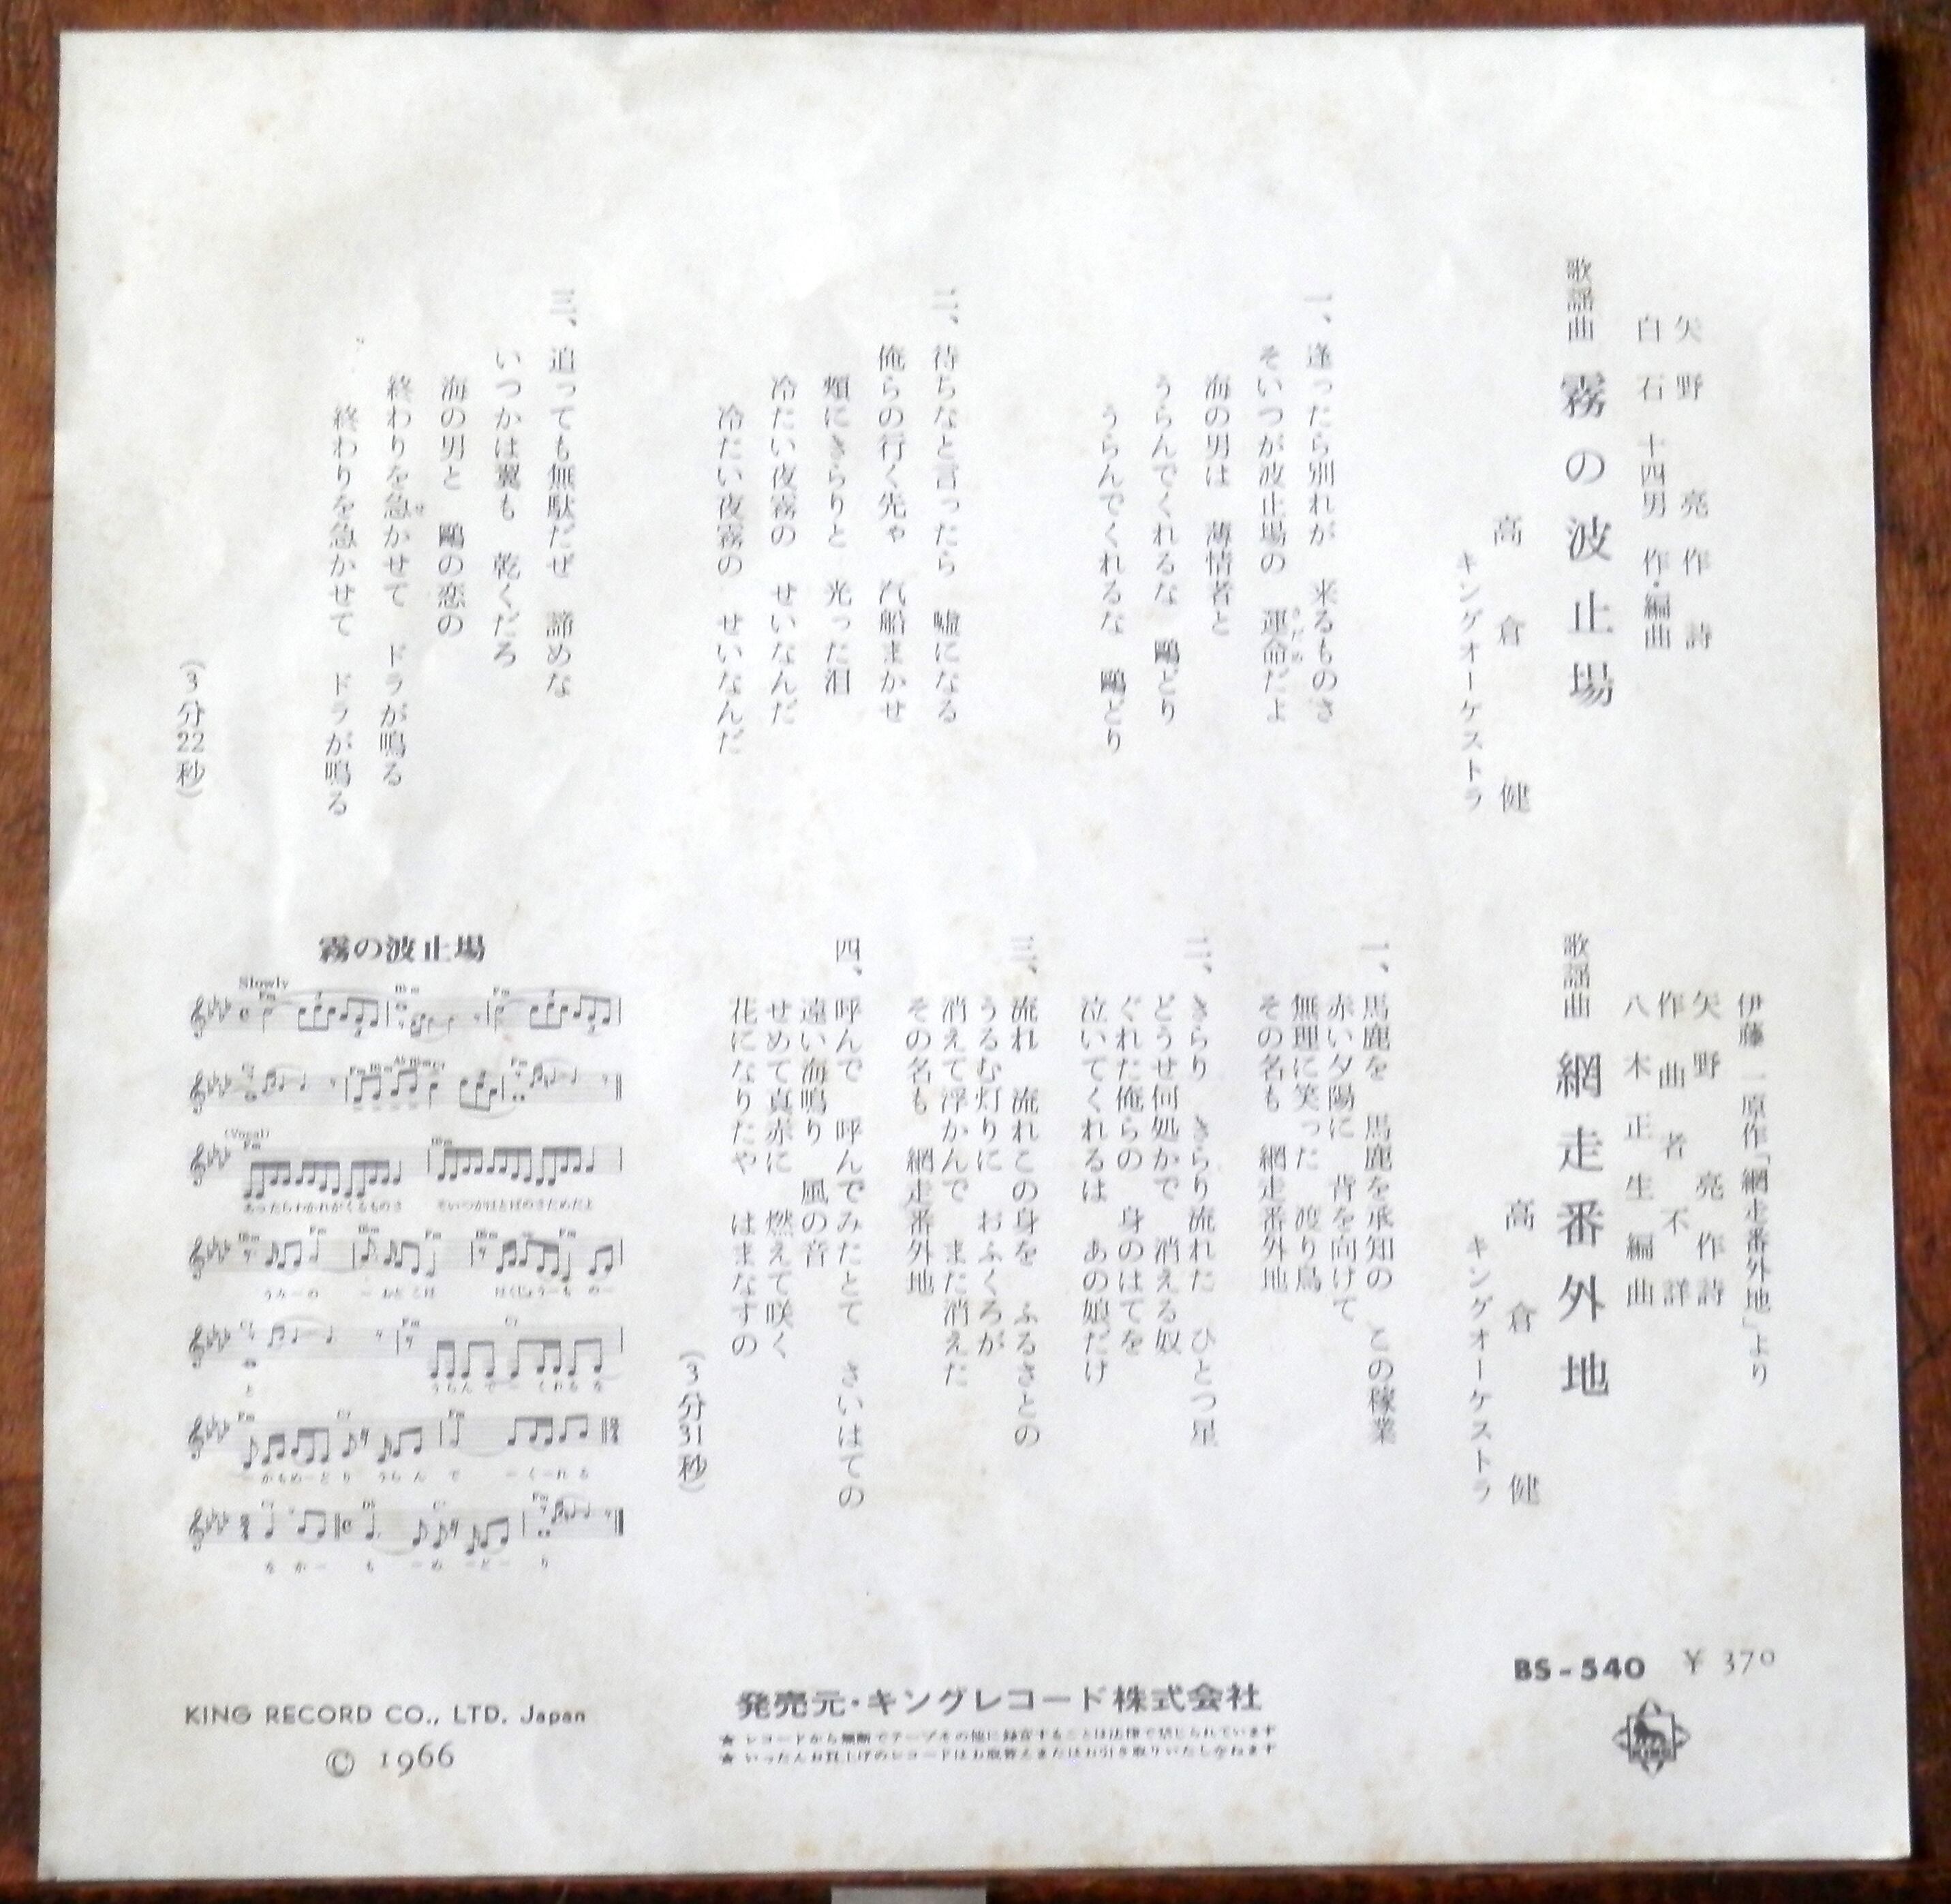 矢野 亮 作詩
白石十四男 作・編曲
歌謡曲 霧の波止場
高倉 健
キングオーケストラ
一、逢ったら別れが 来るものさ
そいつが波止場の 運命だよ
さだめ
海の男は 薄情者と
うらんでくれるな 鷗どり
うらんでくれるな 鷗どり
二、待ちなと言ったら 嘘になる
俺らの行く先ゃ 汽船まかせ
頬にきらりと 光った泪
冷たい夜霧の せいなんだ
冷たい夜霧の せいなんだ
三、追っても無駄だぜ 諦めな
いつかは翼も 乾くだろ
海の男と 鷗の恋の
終わりを急かせて ドラが鳴る
せ
終わりを急かせて ドラが鳴る
(3分22秒)
伊藤 一原作「網走番外地」より
矢野 亮 作詩
作曲者不詳
八木正生 編曲
歌謡曲 網走番外地
高倉 健
キングオーケストラ
一、馬鹿を 馬鹿を承知の この稼業
赤い夕陽に 背を向けて
無理に笑った 渡り鳥
その名も 網走番外地
二、きらり きらり流れた ひとつ星
どうせ何処かで 消える奴
ぐれた俺らの 身のはてを
泣いてくれるは あの娘だけ
三、流れ 流れこの身を ふるさとの
うるむ灯りに おふくろが
消えて浮かんで また消えた
その名も 網走番外地
四、呼んで 呼んでみたとて さいはての
遠い海鳴り 風の音
せめて真赤に 燃えて咲く
花になりたや はまなすの
(3分31秒)
霧の波止場
Slowly
(Vocal)
あったらわかれがくるものさ そいつがはとばのさだめだよ
うみーの ーおとこは はくじょうーもの
と うらんでー くれるな
ーかもめーどり うらんで ーくーれる
なかー もーめーどーり
BS-540 ¥370
KING
発売元・キングレコード株式会社
★ レコードから無断でテープその他に録音することは法律で禁じられています
★ いったんお買上げのレコードはお取替えまたはお引き取りいたしかねます
KING RECORD CO., LTD. Japan
© 1966